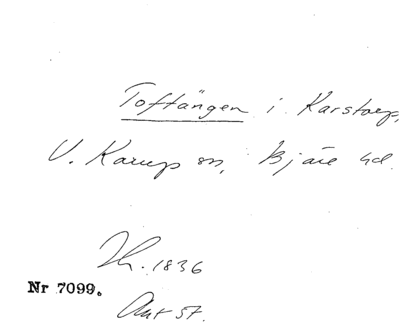 Toftängen i Karstorp,
V. Karup sn, Bjäre hd.
1836
Nr 7099.
Akt 57.